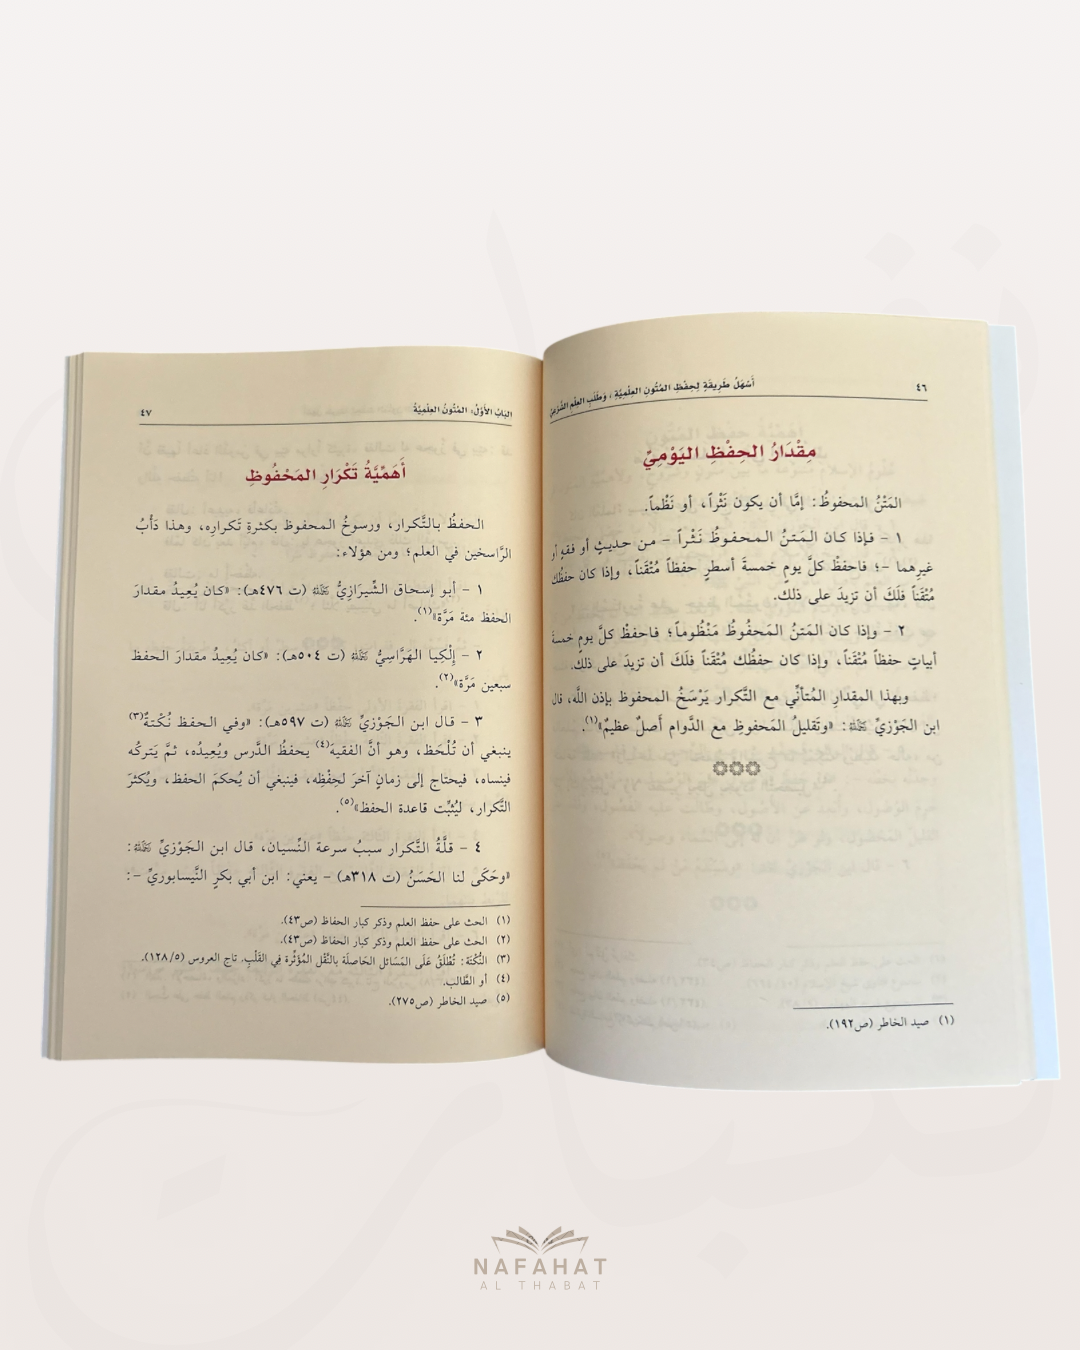 ٤٦
أَسْهَلُ طَرِيقَةٍ لِحِفْظِ المُتُونِ العِلْمِيَّةِ ، وَطَلَبِ العِلْمِ الشَّرْعِيِّ
مِقْدَارُ الحِفْظِ اليَوْمِيِّ
المَتْنُ المحفوظُ: إمَّا أن يكون نَثْراً، أو نَظْماً.
١ – فإذا كان المَتنُ المحفوظُ نَثْراً – من حديثٍ أو فقهٍ أو
غيرِهما –؛ فاحفظْ كلَّ يومٍ خمسةَ أسطرٍ حفظاً مُتْقَناً، وإذا كان حفظُك
مُتْقَناً فلَكَ أن تزيدَ على ذلك.
٢ – وإذا كان المَتنُ المَحفُوظُ مَنْظُوماً؛ فاحفظْ كلَّ يومٍ خمسةَ
أبياتٍ حفظاً مُتْقَناً، وإذا كان حفظُك مُتْقَناً فلَكَ أن تزيدَ على ذلك.
وبهذا المقدارِ المُتأنِّي مع التَّكرار يَرْسَخُ المحفوظ بإذن اللَّه، قال
ابن الجَوْزيِّ رحمه الله: «وتَقليلُ المَحفوظِ مع الدَّوام أَصلٌ عظيمٌ»(١).
(١) صيد الخاطر (ص١٩٢).
البَابُ الأَوَّلُ: المُتُونُ العِلْمِيَّةُ
٤٧
أَهَمِّيَّةُ تَكْرَارِ المَحْفُوظِ
الحفظُ بالتَّكرار، ورسوخُ المحفوظ بكثرةِ تَكرارِه، وهذا دَأْبُ
الرَّاسخين في العلم؛ ومن هؤلاء:
١ – أبو إسحاق الشِّيرَازِيُّ رحمه الله (ت ٤٧٦هـ): «كان يُعِيدُ مقدارَ
الحفظ مئة مَرَّة»(١).
٢ – إِلْكِيا الهَرَّاسِيُّ رحمه الله (ت ٥٠٤هـ): «كان يُعِيدُ مقدارَ الحفظ
سبعين مَرَّة»(٢).
٣ – قال ابن الجَوْزيِّ رحمه الله (ت ٥٩٧هـ): «وفي الحفظ نُكْتةٌ(٣)
ينبغي أن تُلْحَظ، وهو أنَّ الفقيهَ(٤) يحفظُ الدَّرس ويُعِيدُه، ثمَّ يَتركُه
فينساه، فيحتاج إلى زمانٍ آخرَ لحِفْظِه، فينبغي أن يُحكمَ الحفظ، ويُكثرَ
التَّكرار، ليُثبِّت قاعدة الحفظ»(٥).
٤ – قلَّةُ التَّكرار سببُ سرعة النِّسيان، قال ابن الجَوْزيِّ رحمه الله:
«وحَكَى لنا الحَسَنُ (ت ٣١٨هـ) – يعني: ابن أبي بكرٍ النَّيسابوريِّ –:
(١) الحث على حفظ العلم وذكر كبار الحفاظ (ص٤٣).
(٢) الحث على حفظ العلم وذكر كبار الحفاظ (ص٤٣).
(٣) النُّكْتَة: تُطْلَقُ عَلَى المَسَائلِ الحَاصلَة بالنَّقْل المُؤثِّرة فِي القَلْبِ. تاج العروس (١٢٨/٥).
(٤) أو الطَّالب.
(٥) صيد الخاطر (ص٢٧٥).
NAFAHAT
AL THABAT